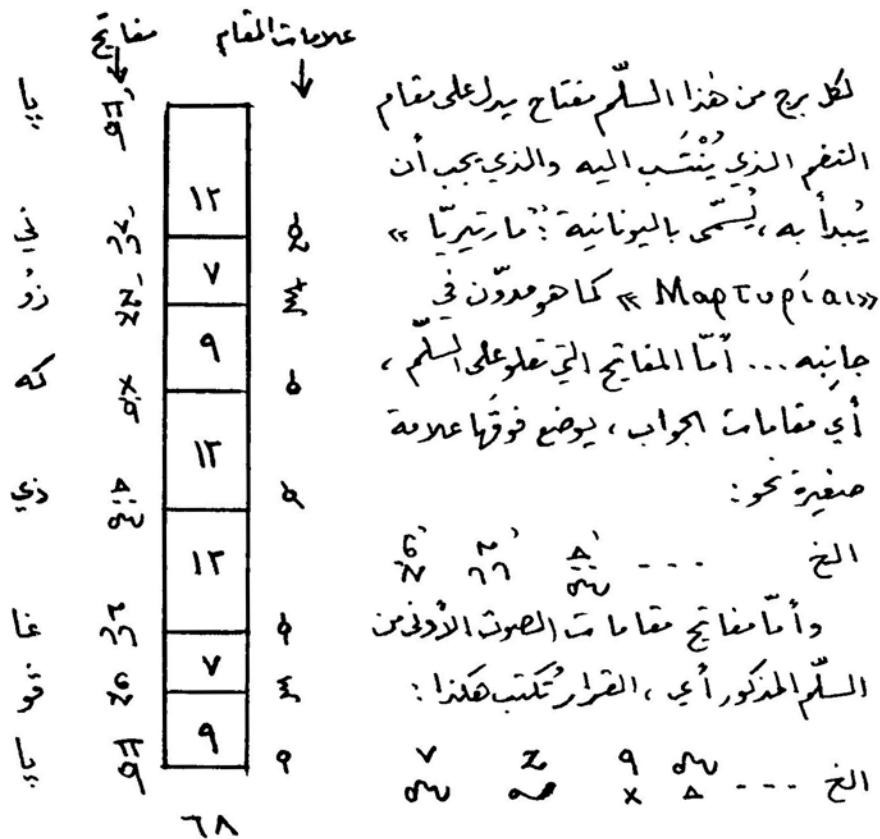 مفاتيح علامات المقام
لكل برج من هٰذا السلّم مفتاح يدل على مقام
النغم الذي يُنْتَسب اليه والذي يجب أن
يُبدأ به، يُسمّى باليونانية: «مارتيريّا»
«Μαρτυρίαι» كما هو مدوّن في
جانبه... أمّا المفاتيح التي تعلو على السلّم،
أي مقامات الجواب، يوضع فوقها علامة
صغيرة نحو:
--- الخ
وأمّا مفاتيح مقامات الصوت الأدنى من
السلّم المذكور أي، القرار تُكتب هكذا:
--- الخ
يا
ني
زو
كه
ذي
غا
ڤو
يا
١٢
٧
٩
١٢
١٢
٧
٩
٦٨